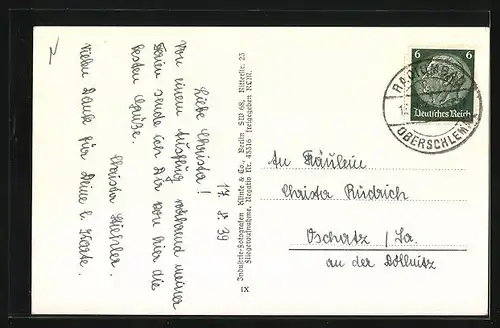 17. 8. 39
Liebe Christa!
Von einem Ausflug während meiner
Ferien sende ich Dir von hier die
besten Grüße.
Christa
Vielen Dank für Deine l. Karte.
Industrie-Fotografen Klinke & Co., Berlin SW 68, Ritterstr. 23
Fliegeraufnahme. Negativ Nr. 43316 freigegeben RLM.
IX
6 6
Deutsches Reich
RADIUMBAD
OBERSCHLEMA
An Fräulein
Christa Rudrich
Oschatz / Sa.
an der Döllnitz